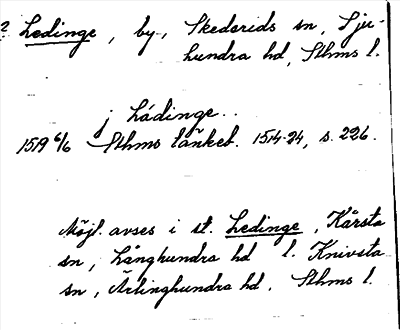 ? Ledinge, by, Skederids sn, Sju-
hundra hd, Sthms l.
j Lådinge..
1519 6/6 Sthms tänkeb. 1514-24, s. 226.
Möjl. avses i st. Ledinge, Kårsta
sn, Långhundra hd l. Knivsta
sn, Ärlinghundra hd, Sthms l.